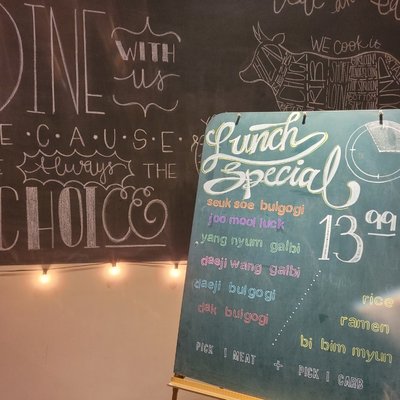 DINE
WITH
us
E C A U S E
Always
THE
CHOICE
WE COOK it
Lunch
Special
13.99
seuk soe bulgogi
joo mool luck
yang nyum galbi
daeji wang galbi
daeji bulgogi
dak bulgogi
rice
ramen
bi bim myun
PICK 1 MEAT + PICK 1 CARB